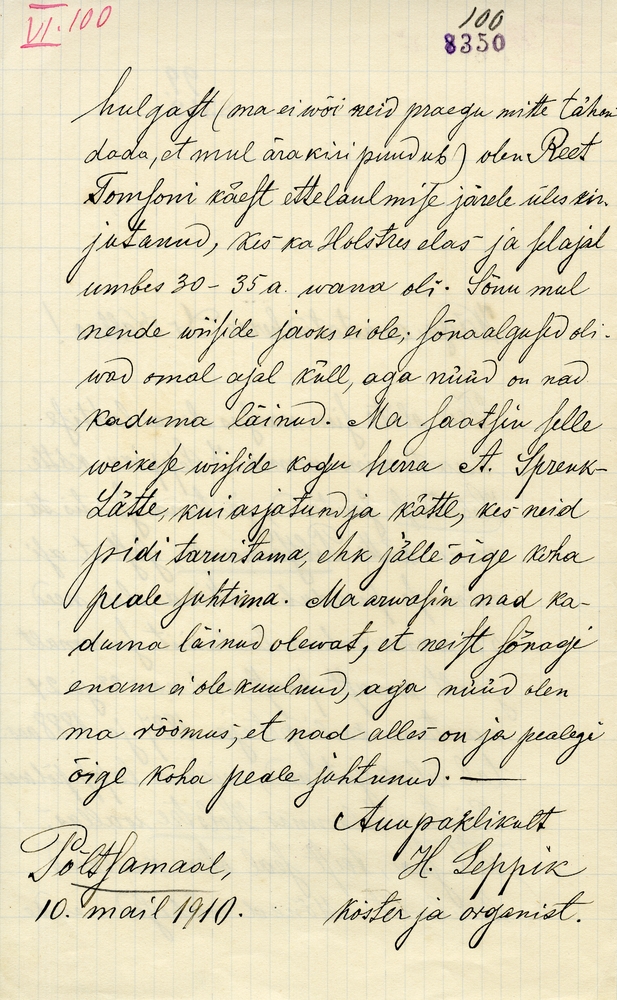 VI. 100
100
8350
hulgast (ma ei wõi neid praegu mitte tähen
dada, et mul ärakiri puudub) olen Reet
Tomsoni käest ettelaulmise järele üles kir-
jutanud, kes ka Holstres elas ja selajal
umbes 30 - 35 a. wana oli. Sõnu mul
nende wiiside jaoks ei ole; sõnaalgused oli-
wad omal ajal küll, aga nüüd on nad
kaduma läinud. Ma saatsin selle
weikese wiiside kogu herra A. Sprenk-
Lätte, kui asjatundja kätte, kes neid
pidi tarwitama, ehk jälle õige koha
peale juhtima. Ma arwasin nad ka-
duma läinud olewat, et neist sõnagi
enam ei ole kuulnud, aga nüüd olen
ma rõõmus, et nad alles on ja pealegi
õige koha peale juhtunud. —
Auupaklikult
H. Leppik
köster ja organist.
Põltsamaal,
10. mail 1910.